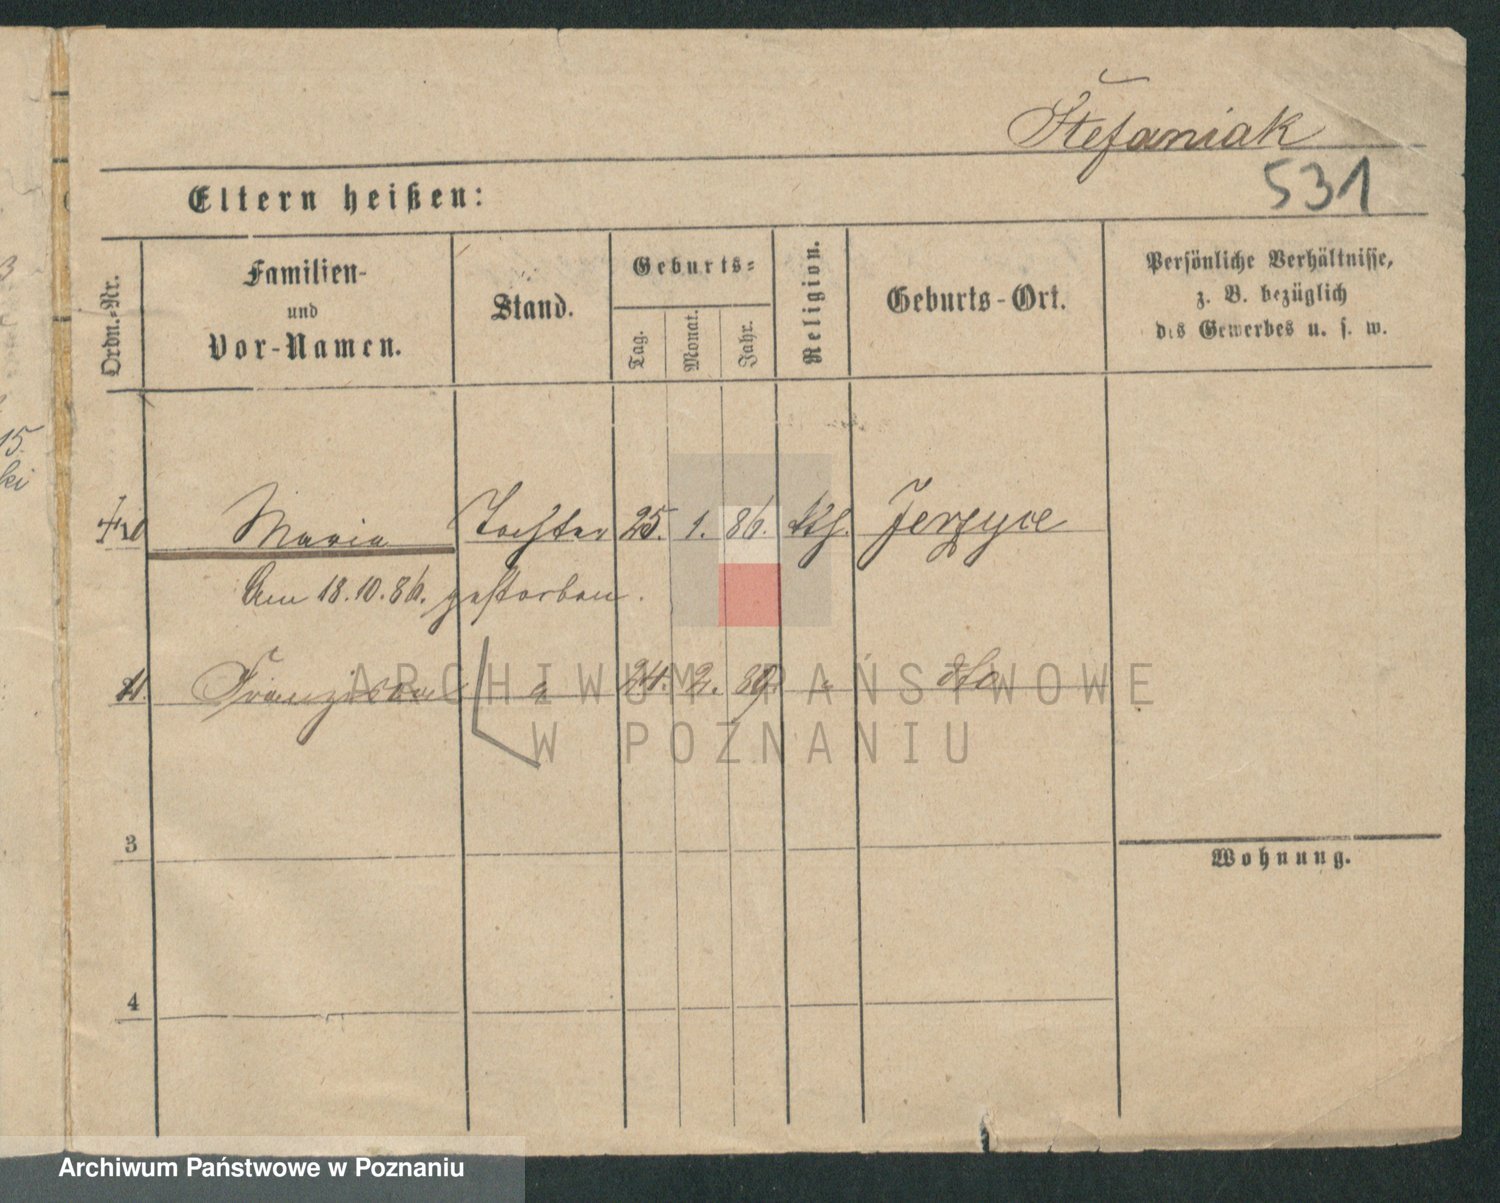 Stefaniak
531
Eltern heißen:
Ordn.-Nr.
Familien-
und
Vor-Namen.
Stand.
Geburts-
Tag.
Monat.
Jahr.
Religion.
Geburts-Ort.
Persönliche Verhältnisse,
z. B. bezüglich
des Gewerbes u. s. w.
Maria Tochter 25. 1. 86. kth. Jerzyce
Am 18.10.86. gestorben.
Franziska " 24. 2. 89. " dto
3
Wohnung.
4
ARCHIWUM PAŃSTWOWE
W POZNANIU
15.
ki
Archiwum Państwowe w Poznaniu